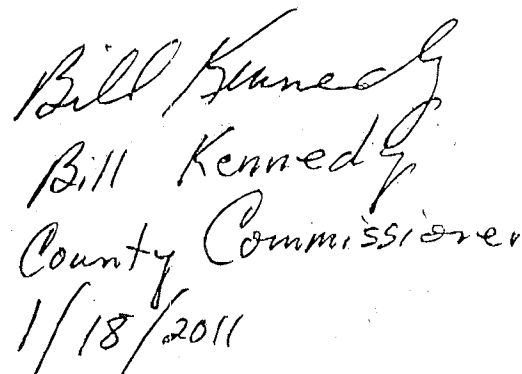 Bill Kennedy
Bill Kennedy
County Commissioner
1/18/2011